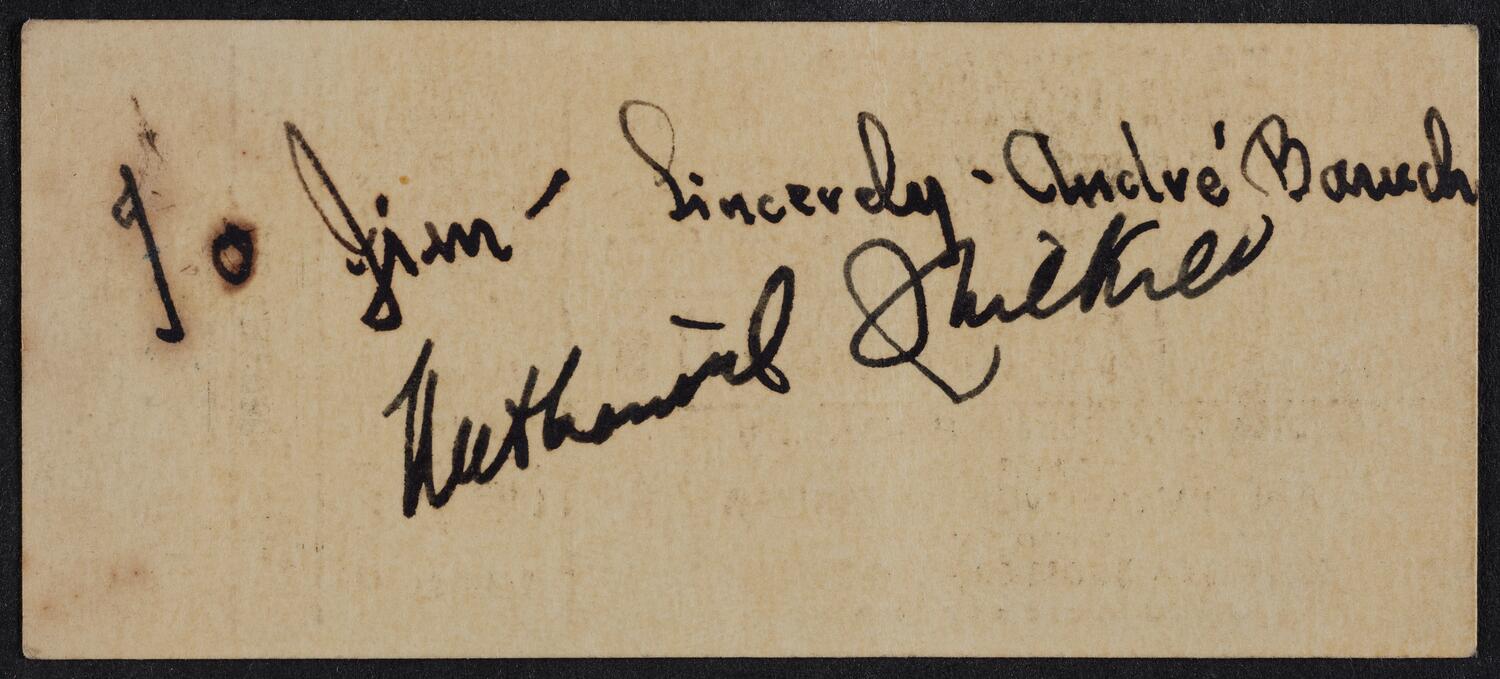 To Jim - Sincerely - André Baruch
Nathaniel Shilkret